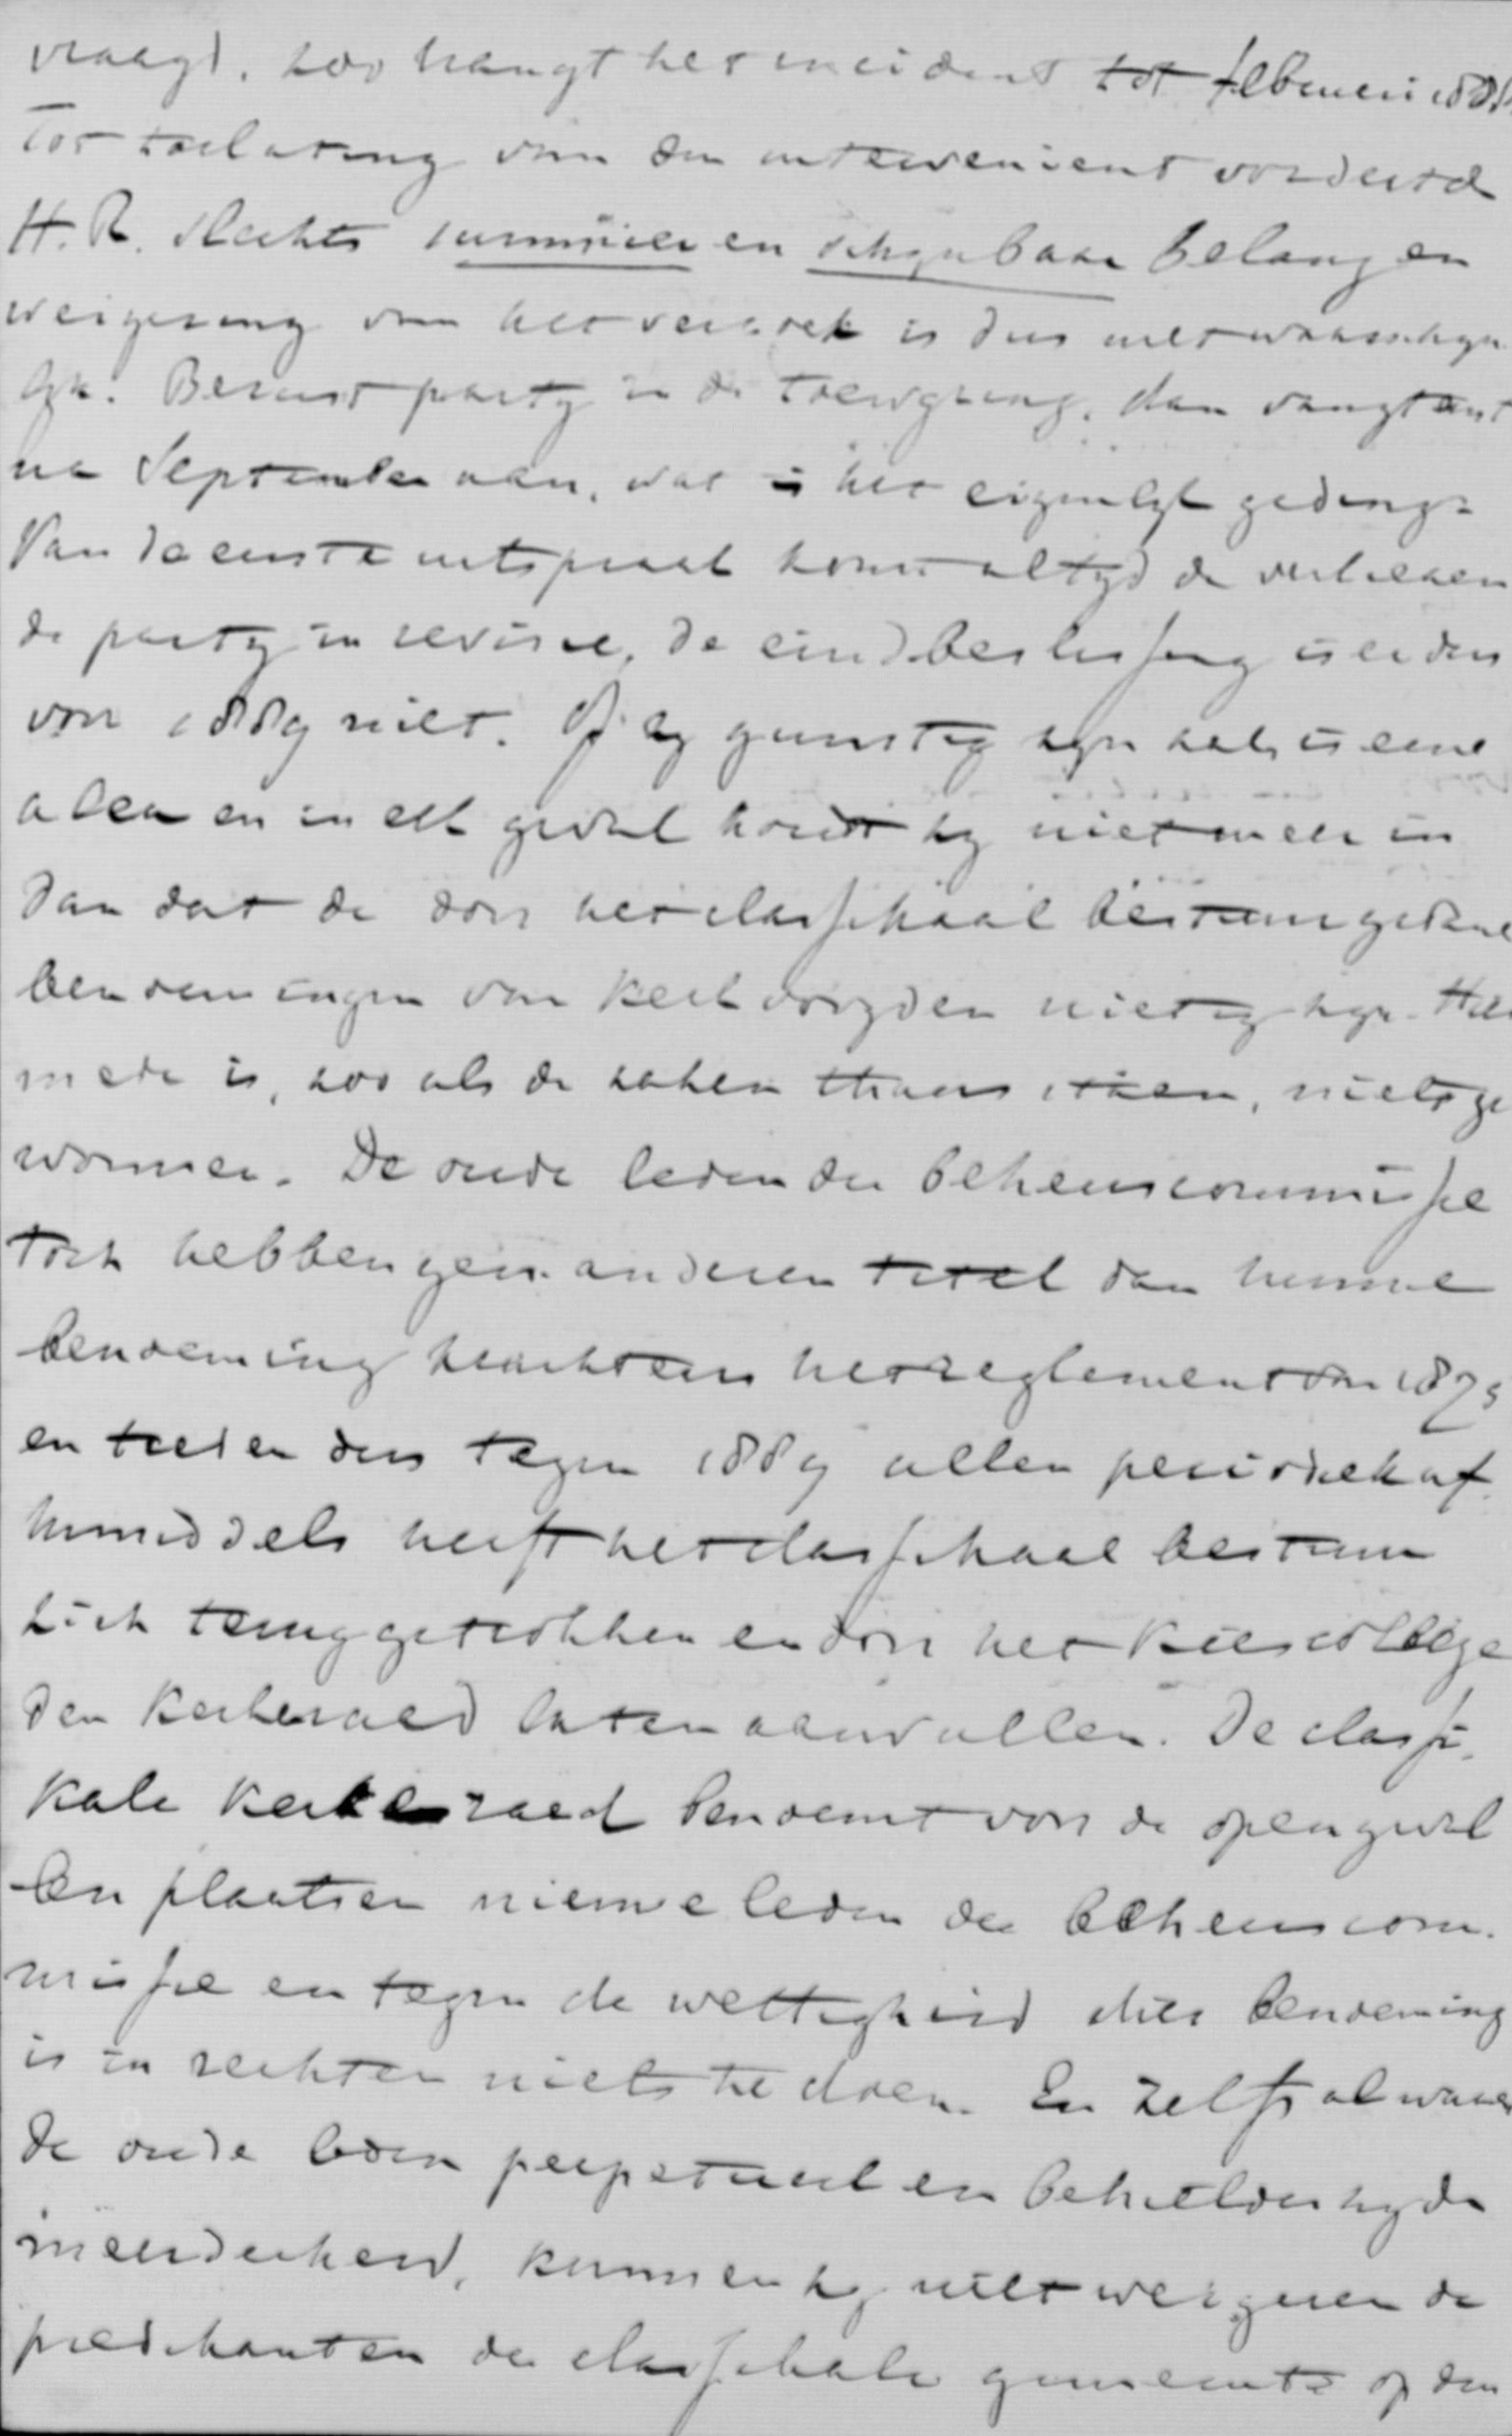 vraagt, zoo hangt het incident tot februari 1888.
Tot toelating van den intervenient vorderde
H.R. slechts summier en schynbaar belang en
weigering van het verzoek is dus niet waarschyn
lyk. Berust party in de toewyzing, dan vangt eerst
na September aan, wat is het eigenlyk geding.
Van de eerste uitspraak komt altyd de verliezen
de party in revisie, de eindbeslissing is er dus
voor 1889 niet. Of zy gunstig zyn zal, is eene
alea en in elk geval houdt zy niet meer in
dan dat de door het classikaal bestuur gedane
benoemingen van kerkvoogden nietig zyn. Hier
mede is, zoo als de zaken thans staan, niets ge
wonnen. De oude leden der beheerscommissie
toch hebben geen anderen titel dan hunne
benoeming krachtens het reglement van 1875
en treden dus tegen 1889 allen periodiek af.
Inmiddels heeft het classikaal bestuur
zich teruggetrokken en door het Kiescollege
den Kerkeraad laten aanvullen. De classi-
kale kerkeraad benoemt voor de opengeval
len plaatsen nieuwe leden der beheerscom-
missie en tegen de wettigheid dier benoeming
is in rechten niets te doen. En zelfs al waren
de oude leden perpetueel en behielden zy de
meerderheid, kunnen zy niet weigeren de
predikanten der classikale gemeente op den